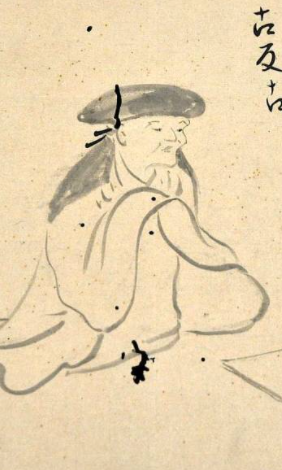 古反古